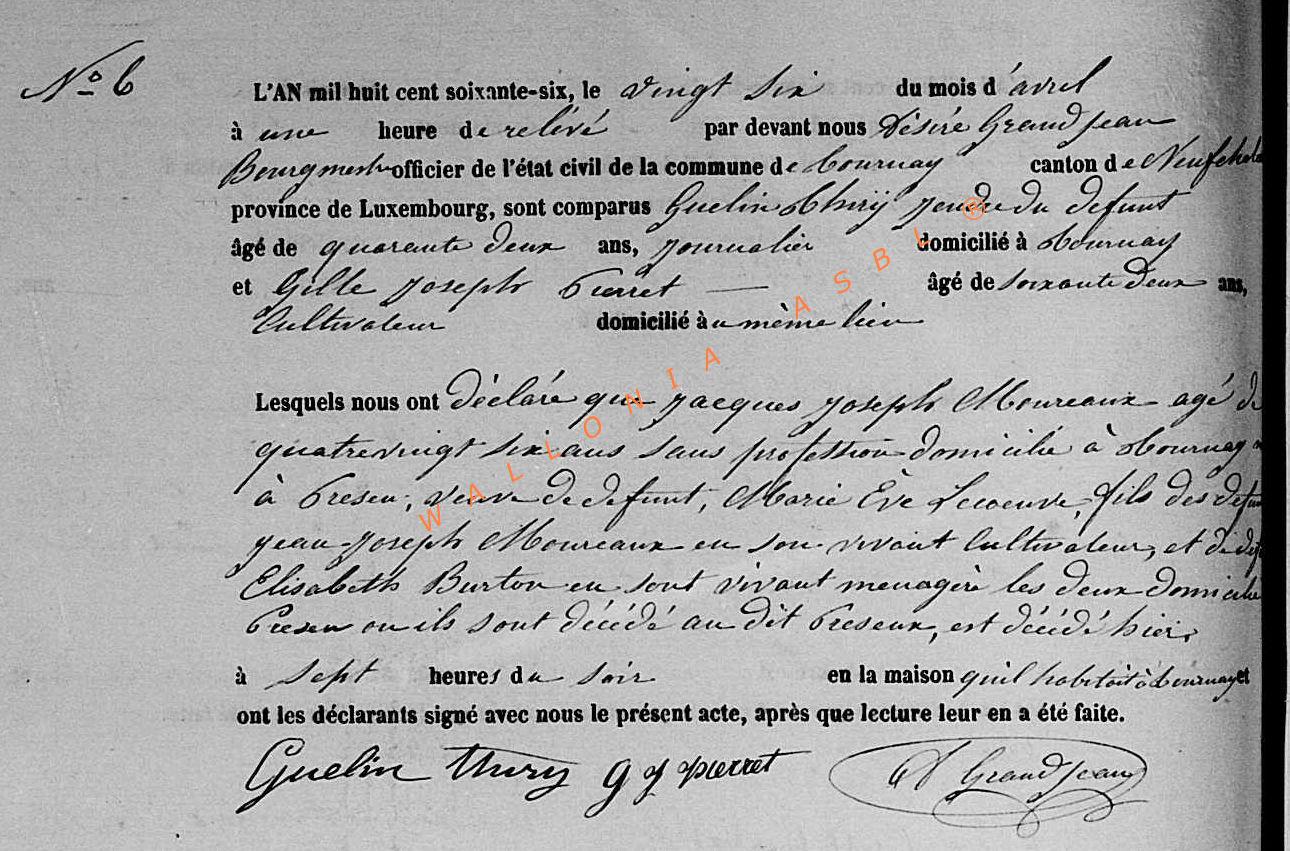 No 6
L'AN mil huit cent soixante-six, le vingt six du mois d'avril
à une heure de relévé par devant nous Désiré Grandjean
Bourgmestre officier de l'état civil de la commune de Tournay canton de Neufchate
province de Luxembourg, sont comparus Guelin Thiry gendre du defunt
âgé de quarante deux ans, journalier domicilié à Tournay
et Gille Joseph Pierret — âgé de soixante deux ans,
Cultivateur domicilié à u même lieu
Lesquels nous ont déclaré que Jacques Joseph Moureaux agé de
quatrevingt six ans sans profession domicilié à Tournay
à Preseu, veuve de defunt, Marie Ève Lecoeuve, fils des defun
Jean Joseph Moureaux en son vivant Cultivateur, et de def
Elisabeth Burton en sont vivant menagère les deux domicilie
Preseu ou ils sont décédé au dit Preseux, est décédé hier,
à sept heures du soir en la maison qu'il habitait à Tournay et
ont les déclarants signé avec nous le présent acte, après que lecture leur en a été faite.
Guelin thiry g j pierret D Grandjean
WALLONIA ASBL ®